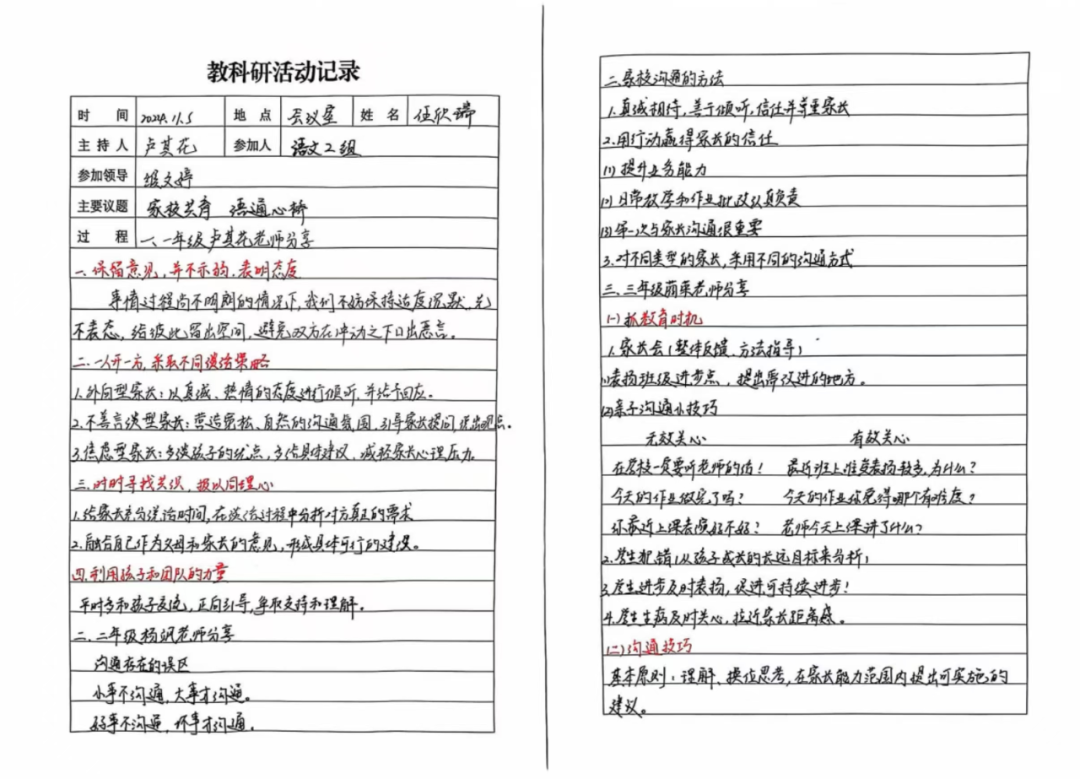 教科研活动记录
时 间 2024.11.5 地 点 会议室 姓 名 任欣瑞
主 持 人 卢其花 参加人 语文2组
参加领导 缑文婷
主要议题 家校共育 语通心桥
过 程 一、一年级卢其花老师分享
一、保留意见,并不示弱,表明态度
事情过程尚不明朗的情况下,我们不妨保持适度沉默,先
不表态,给彼此留出空间,避免双方在冲动之下口出恶言。
二、一人开一方,采取不同谈话策略
1.外向型家长:以真诚、热情的态度进行倾听,并给予回应。
2.不善言谈型家长:营造宽松、自然的沟通氛围,引导家长提问,说出观点。
3.焦虑型家长:多谈孩子的优点,多给具体建议,减轻家长心理压力
三、时时寻找共识,报以同理心
1.给家长充分说话时间,在谈话过程中分析对方真正的需求
2.融合自己作为父母和家长的意见,形成具体可行的建议。
四、利用孩子和团队的力量
平时多和孩子交流,正向引导,争取支持和理解。
二、二年级杨飒老师分享
沟通存在的误区
小事不沟通,大事才沟通。
好事不沟通,坏事才沟通。
二、家校沟通的方法
1.真诚相待,善于倾听,信任并尊重家长
2.用行动赢得家长的信任
(1)提升业务能力
(2)日常教学和作业批改认真负责
(3)第一次与家长沟通很重要
3.对不同类型的家长,采用不同的沟通方式
三、三年级荫果老师分享
(一)抓教育时机
1.家长会(整体反馈、方法指导)
(1)表扬班级进步点,提出需改进的地方。
(2)亲子沟通小技巧
无效关心 有效关心
在学校一定要听老师的话! 最近班上谁受表扬较多,为什么?
今天的作业做完了吗? 今天的作业你觉得哪个有难度?
你最近上课表演好不好? 老师今天上课讲了什么?
2.学生犯错(从孩子成长的长远目标来分析)
3.学生进步及时表扬,促进可持续进步!
4.学生生病及时关心,拉近家长距离感。
(二)沟通技巧
基本原则:理解、换位思考,在家长能力范围内提出可实施的
建议。